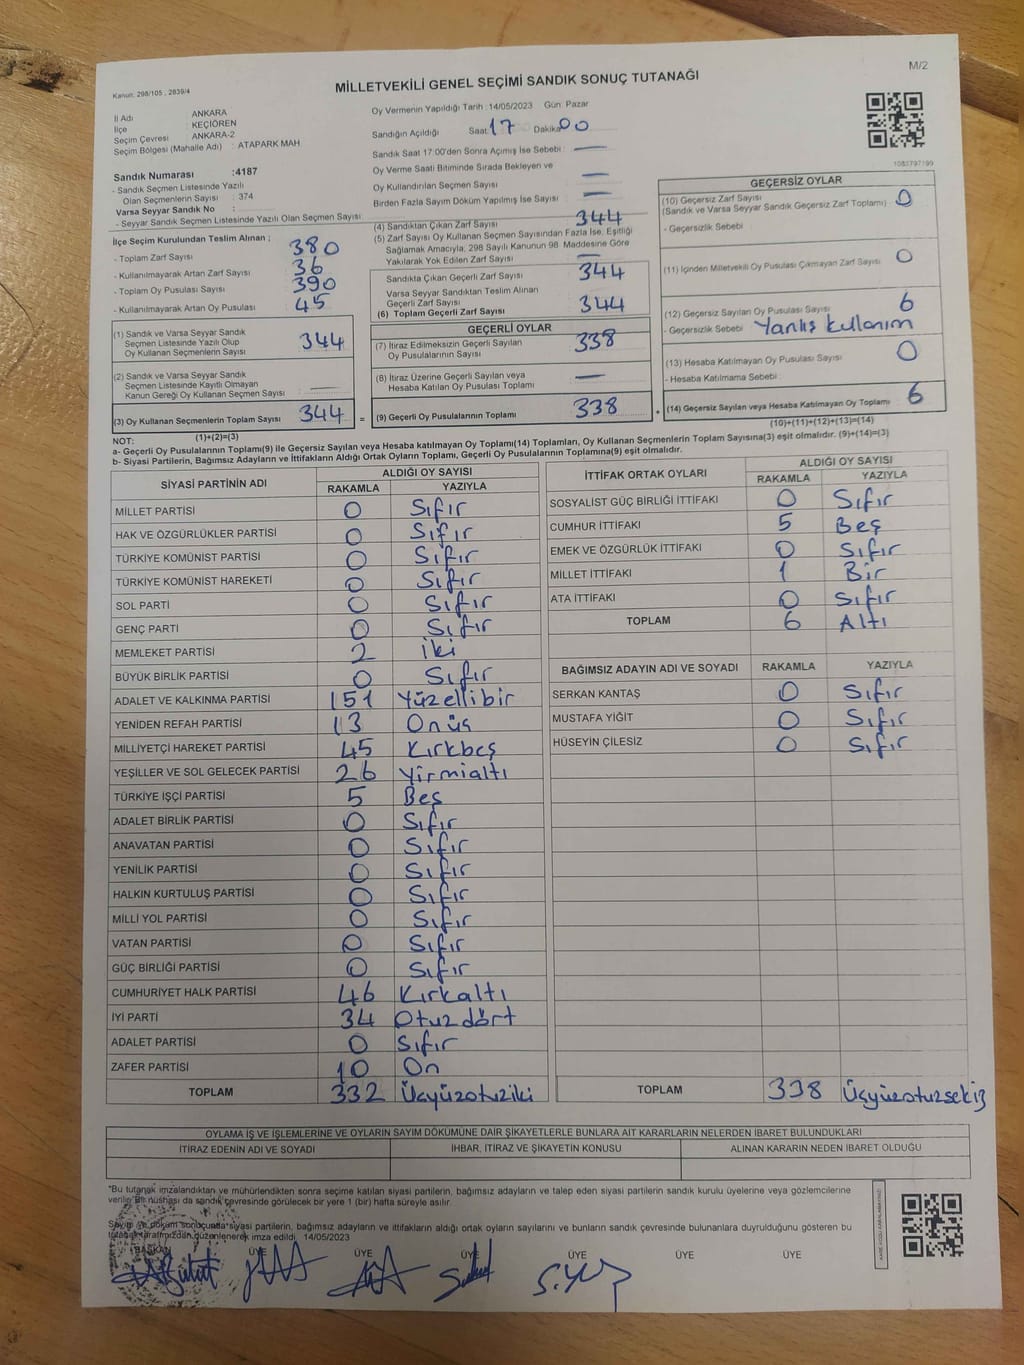 M/2
MİLLETVEKİLİ GENEL SEÇİMİ SANDIK SONUÇ TUTANAĞI
Kanun: 298/105 , 2839/4
İl Adı : ANKARA
İlçe : KEÇİÖREN
Seçim Çevresi : ANKARA-2
Seçim Bölgesi (Mahalle Adı) : ATAPARK MAH
Sandık Numarası :4187
- Sandık Seçmen Listesinde Yazılı
Olan Seçmenlerin Sayısı : 374
Varsa Seyyar Sandık No :
- Seyyar Sandık Seçmen Listesinde Yazılı Olan Seçmen Sayısı :
Oy Vermenin Yapıldığı Tarih :14/05/2023 Gün: Pazar
Sandığın Açıldığı Saat: 17 Dakika: 00
Sandık Saat 17:00'den Sonra Açımış İse Sebebi : —
Oy Verme Saati Bitiminde Sırada Bekleyen ve
Oy Kullandırılan Seçmen Sayısı —
Birden Fazla Sayım Döküm Yapılmış İse Sayısı —
1083797199
İlçe Seçim Kurulundan Teslim Alınan ;
- Toplam Zarf Sayısı 380
- Kullanılmayarak Artan Zarf Sayısı : 36
- Toplam Oy Pusulası : 390
- Kullanılmayarak Artan Oy Pusulası : 45
(1) Sandık ve Varsa Seyyar Sandık
Seçmen Listesinde Yazılı Olup
Oy Kullanan Seçmenlerin Sayısı 344
(2) Sandık ve Varsa Seyyar Sandık
Seçmen Listesinde Kayıtlı Olmayan
Kanun Gereği Oy Kullanan Seçmen Sayısı —
(3) Oy Kullanan Seçmenlerin Toplam Sayısı 344 =
(1)+(2)=(3)
(4) Sandıktan Çıkan Zarf Sayısı 344
(5) Zarf Sayısı Oy Kullanan Seçmen Sayısından Fazla İse, Eşitliği
Sağlamak Amacıyla, 298 Sayılı Kanunun 98. Maddesine Göre
Yakılarak Yok Edilen Zarf Sayısı —
Sandıkta Çıkan Geçerli Zarf Sayısı 344
Varsa Seyyar Sandıktan Teslim Alınan
Geçerli Zarf Sayısı
(6) Toplam Geçerli Zarf Sayısı 344
GEÇERLİ OYLAR
(7) İtiraz Edilmeksizin Geçerli Sayılan
Oy Pusulalarının Sayısı 338
(8) İtiraz Üzerine Geçerli Sayılan veya
Hesaba Katılan Oy Pusulası Toplamı —
(9) Geçerli Oy Pusulalarının Toplamı 338
GEÇERSİZ OYLAR
(10) Geçersiz Zarf Sayısı
(Sandık ve Varsa Seyyar Sandık Geçersiz Zarf Toplamı) : 0
- Geçersizlik Sebebi :
(11) İçinden Milletvekili Oy Pusulası Çıkmayan Zarf Sayısı 0
(12) Geçersiz Sayılan Oy Pusulası Sayısı 6
- Geçersizlik Sebebi Yanlış kullanım
(13) Hesaba Katılmayan Oy Pusulası Sayısı 0
- Hesaba Katılmama Sebebi :
(14) Geçersiz Sayılan veya Hesaba Katılmayan Oy Toplamı 6
(10)+(11)+(12)+(13)=(14)
NOT:
a- Geçerli Oy Pusulalarının Toplamı(9) ile Geçersiz Sayılan veya Hesaba katılmayan Oy Toplamı(14) Toplamları, Oy Kullanan Seçmenlerin Toplam Sayısına(3) eşit olmalıdır. (9)+(14)=(3)
b- Siyasi Partilerin, Bağımsız Adayların ve İttifakların Aldığı Ortak Oyların Toplamı, Geçerli Oy Pusulalarının Toplamına(9) eşit olmalıdır.
SİYASİ PARTİNİN ADI ALDIĞI OY SAYISI
RAKAMLA YAZIYLA
MİLLET PARTİSİ 0 Sıfır
HAK VE ÖZGÜRLÜKLER PARTİSİ 0 Sıfır
TÜRKİYE KOMÜNİST PARTİSİ 0 Sıfır
TÜRKİYE KOMÜNİST HAREKETİ 0 Sıfır
SOL PARTİ 0 Sıfır
GENÇ PARTİ 0 Sıfır
MEMLEKET PARTİSİ 2 İki
BÜYÜK BİRLİK PARTİSİ 0 Sıfır
ADALET VE KALKINMA PARTİSİ 151 Yüzellibir
YENİDEN REFAH PARTİSİ 13 Onüç
MİLLİYETÇİ HAREKET PARTİSİ 45 Kırkbeş
YEŞİLLER VE SOL GELECEK PARTİSİ 26 Yirmialtı
TÜRKİYE İŞÇİ PARTİSİ 5 Beş
ADALET BİRLİK PARTİSİ 0 Sıfır
ANAVATAN PARTİSİ 0 Sıfır
YENİLİK PARTİSİ 0 Sıfır
HALKIN KURTULUŞ PARTİSİ 0 Sıfır
MİLLİ YOL PARTİSİ 0 Sıfır
VATAN PARTİSİ 0 Sıfır
GÜÇ BİRLİĞİ PARTİSİ 0 Sıfır
CUMHURİYET HALK PARTİSİ 46 Kırkaltı
İYİ PARTİ 34 Otuzdört
ADALET PARTİSİ 0 Sıfır
ZAFER PARTİSİ 10 On
TOPLAM 332 Üçyüzotuziki
İTTİFAK ORTAK OYLARI ALDIĞI OY SAYISI
RAKAMLA YAZIYLA
SOSYALİST GÜÇ BİRLİĞİ İTTİFAKI 0 Sıfır
CUMHUR İTTİFAKI 5 Beş
EMEK VE ÖZGÜRLÜK İTTİFAKI 0 Sıfır
MİLLET İTTİFAKI 1 Bir
ATA İTTİFAKI 0 Sıfır
TOPLAM 6 Altı
BAĞIMSIZ ADAYIN ADI VE SOYADI RAKAMLA YAZIYLA
SERKAN KANTAŞ 0 Sıfır
MUSTAFA YİĞİT 0 Sıfır
HÜSEYİN ÇİLESİZ 0 Sıfır
TOPLAM 338 Üçyüzotuzsekiz
OYLAMA İŞ VE İŞLEMLERİNE VE OYLARIN SAYIM DÖKÜMÜNE DAİR ŞİKAYETLERLE BUNLARA AİT KARARLARIN NELERDEN İBARET BULUNDUKLARI
İTİRAZ EDENİN ADI VE SOYADI İHBAR, İTİRAZ VE ŞİKAYETİN KONUSU ALINAN KARARIN NEDEN İBARET OLDUĞU
"Bu tutanak imzalandıktan ve mühürlendikten sonra seçime katılan siyasi partilerin, bağımsız adayların ve talep eden siyasi partilerin sandık kurulu üyelerine veya gözlemcilerine
verilir. Bir nüshası da sandık çevresinde görülecek bir yere 1 (bir) hafta süreyle asılır.
Sayım ve döküm sonucunda siyasi partilerin, bağımsız adayların ve ittifakların aldığı ortak oyların sayılarını ve bunların sandık çevresinde bulunanlara duyrulduğunu gösteren bu
tutanak tarafımızdan düzenlenerek imza edildi. 14/05/2023
BAŞKAN ÜYE ÜYE ÜYE ÜYE ÜYE